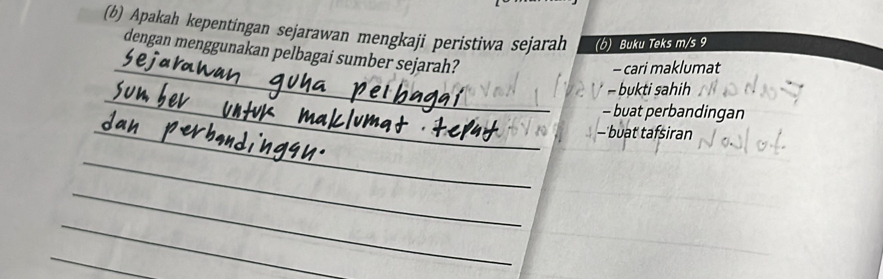 (b) Apakah kepentingan sejarawan mengkaji peristiwa sejarah
dengan menggunakan pelbagai sumber sejarah?
Sejarawan guna pelbagai
sumber untuk maklumat tepat
dan perbandingan.
(b) Buku Teks m/s 9
– cari maklumat
– bukti sahih
– buat perbandingan
– buat tafsiran